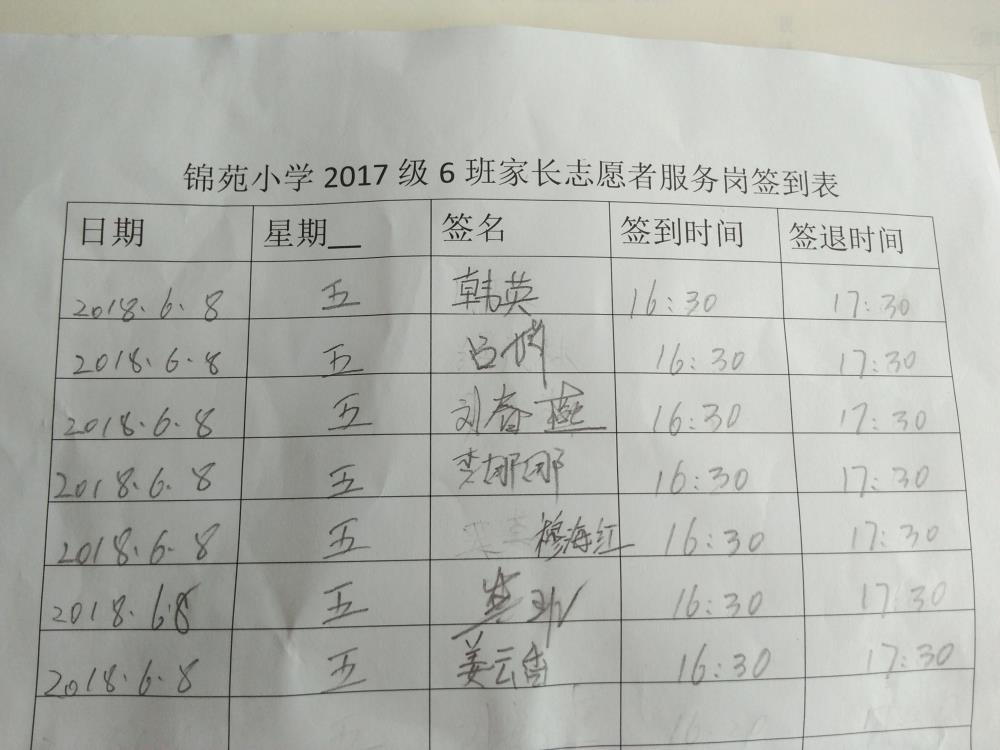 锦苑小学 2017 级 6 班家长志愿者服务岗签到表
日期 星期__ 签名 签到时间 签退时间
2018.6.8 五 韩英 16:30 17:30
2018.6.8 五 16:30 17:30
2018.6.8 五 刘春燕 16:30 17:30
2018.6.8 五 娜娜 16:30 17:30
2018.6.8 五 穆海红 16:30 17:30
2018.6.8 五 16:30 17:30
2018.6.8 五 姜云 16:30 17:30